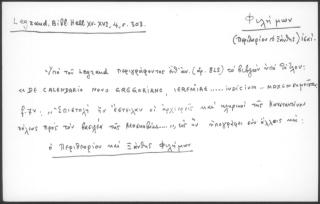 Legrand, Bibl. Hell. XV-XVI, 4, σ. 303.
Φιλήμων
(Περιθεωρίου κ Ξάνθης) ἐπί.
Ὑπὸ τοῦ Legrand περιγράφοντος (ἀρ. 825) τὸ βιβλίον ὑπὸ τὸν τίτλον:
« DE CALENDARIO NOVO GREGORIANO, IEREMIAE ..... IUDICIUM -
f. 7v: «Ἐπιστολὴ ἣν ἔστειλαν οἱ ἀρχιερεῖς καὶ κληρικοὶ τῆς Κωνσταντίνου
πόλεως πρὸς τὸν βασιλέα τῆς Μοσχοβίας .....», ὑπογράφει σὺν ἄλλοις καὶ:
ὁ Περιθεωρίου καὶ Ξάνθης Φιλήμων